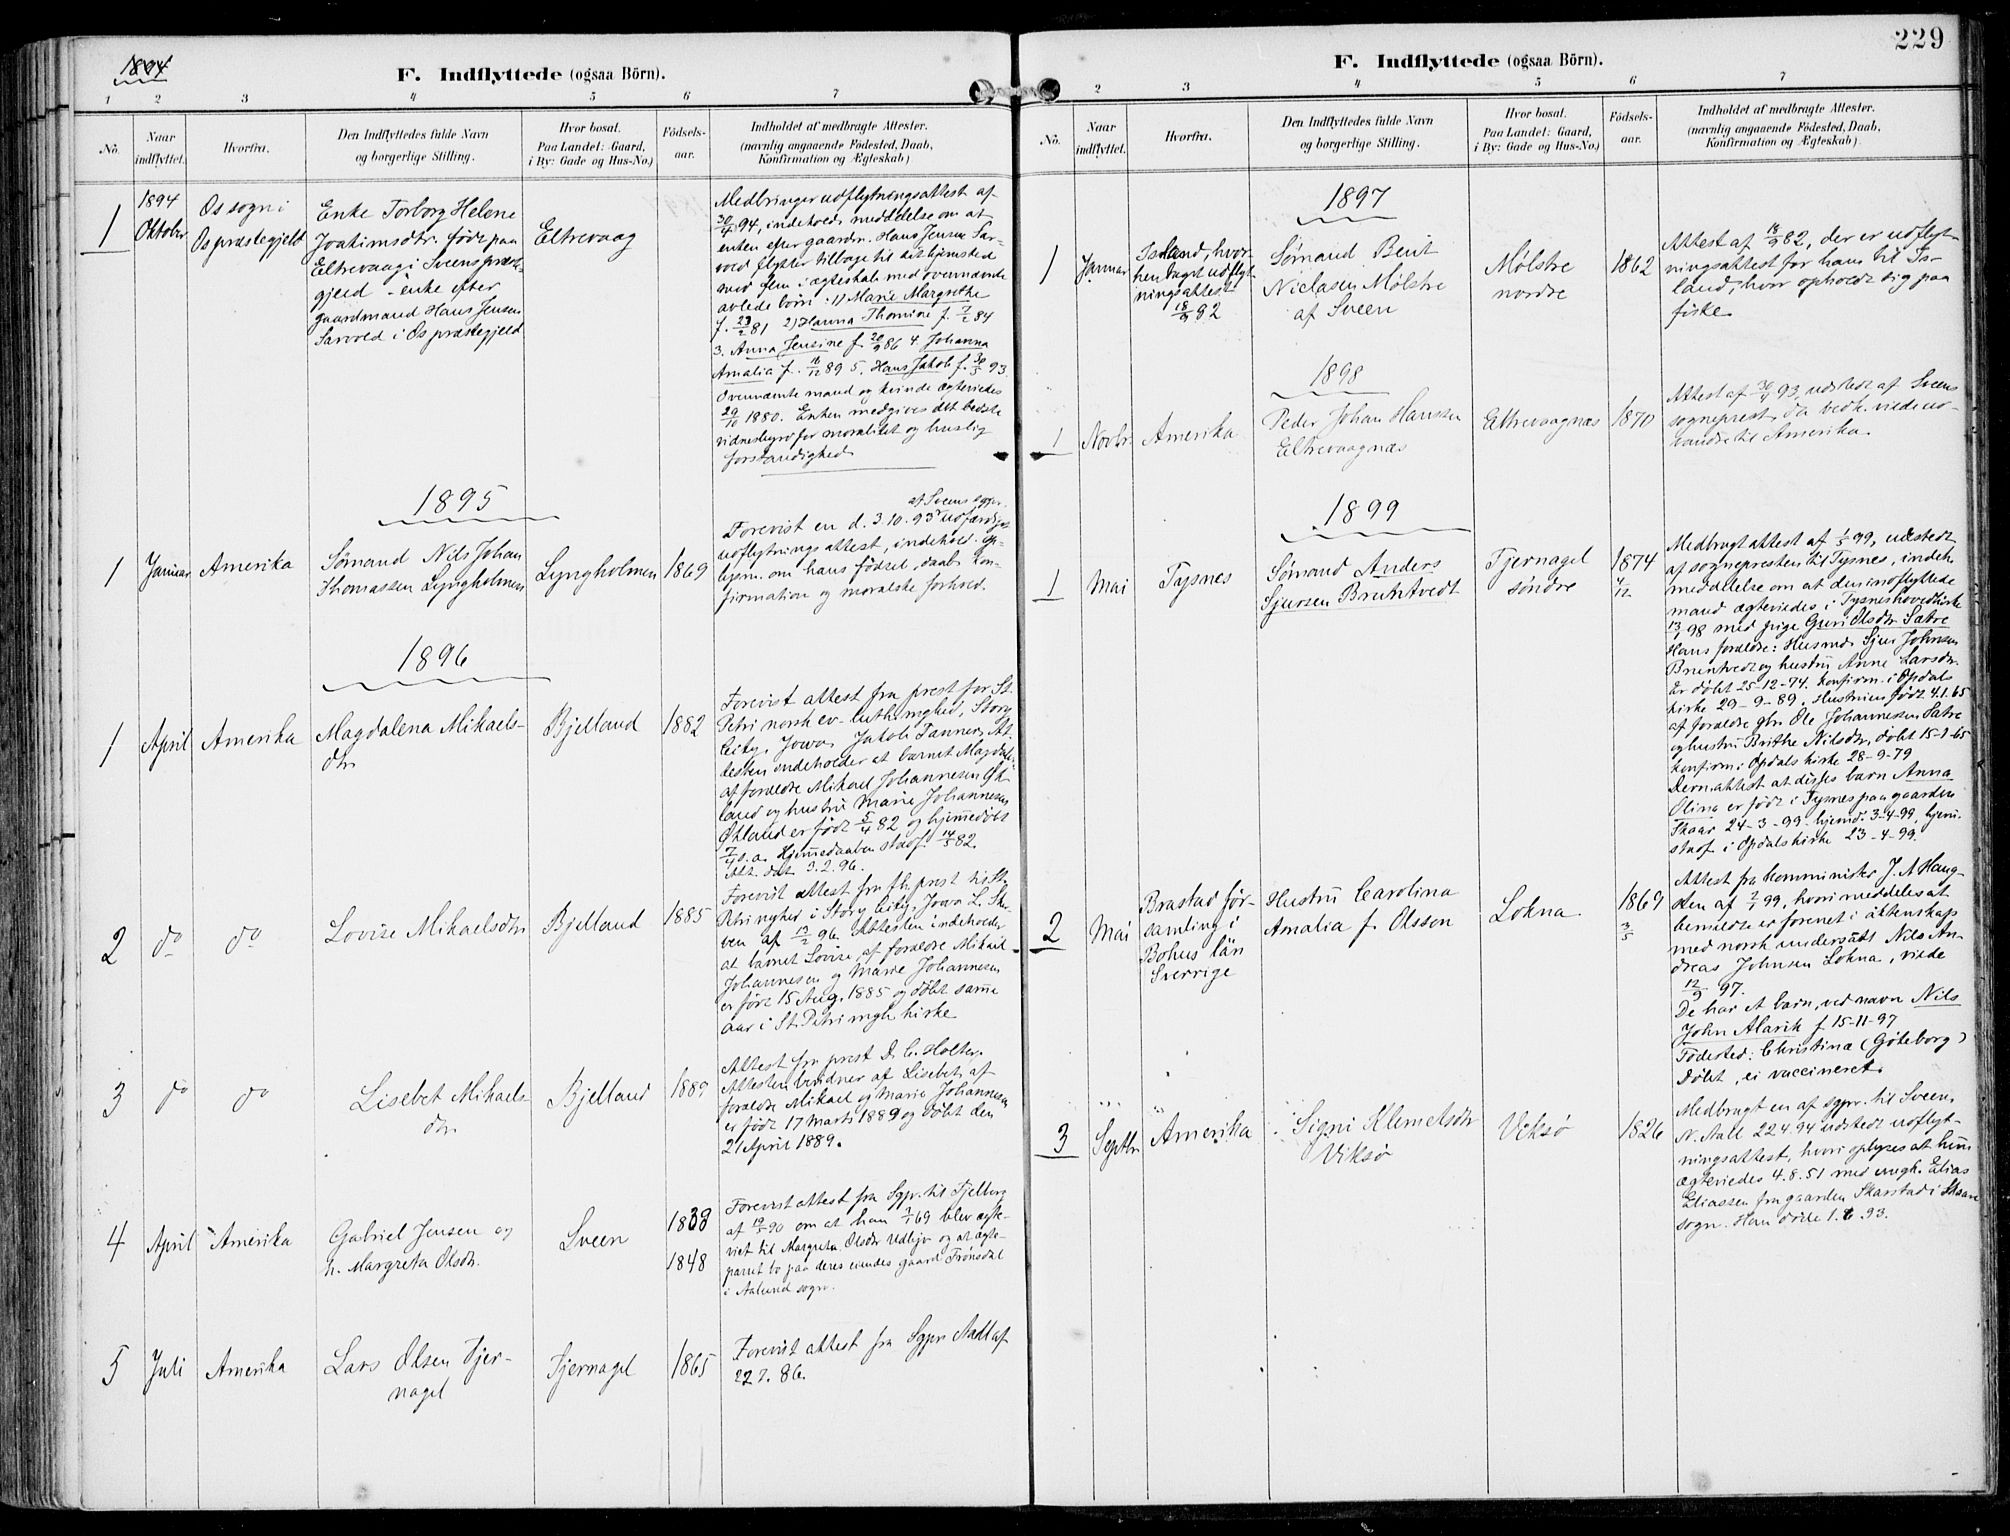 1894
F. Indflyttede (ogsaa Börn).
1 2 3 4 5 6 7
No. Naar indflyttet. Hvorfra. Den Indflyttedes fulde Navn og borgerlige Stilling. Hvor bosat. Paa Landet: Gaard, i By: Gade og Hus-No.) Födsels-aar. Indholdet af medbragte Attester. (navnlig angaaende Födested, Daab, Konfirmation og Ægteskab)
1
1894
Oktober
Os sogn i
Os præstegjeld
Enke Torborg Helene
Joakimsdtr. født paa
Eltrevaag i Sveens præste-
gjeld - enke efter
gaardmand Hans Jensen
Sørvold i Os præstegjeld
Eltrevaag
Medbringer udflytningsattest af
30/4 94, indehold. meddelelse om at
enken efter gaardm. Hans Jensen
flytter tilbage til sit hjemsted
med fem i ægteskab med ovennævnte
avlede børn: 1) Marie Margrethe
f. 23/2 81 2) Hanna Thomine f. 7/2 84
3. Anna Jensine f. 20/9 86 4. Johanna
Amalia f. 16/12 89 5. Hans Jakob f. 30/5 93
Ovennævnte mand og kvinde ægteviedes
29/10 1880. Enken medgives det bedste
vidnesbyrd for moralitet og huslig
forstandighed
1895
1
Januar
Amerika
Sømand Nils Johan
Thomassen Lyngholmen
Lyngholmen
1869
af Sveens sgpr.
Forevist en d. 3.10.93 udfærdiget
udflytningsattest, indehold. op-
lysn. om hans fødsel, daab, kon-
firmation og moralske forhold.
1896
1
April
Amerika
Magdalena Mikaels-
dtr
Bjelland
1882
Forevist attest fra prest for St.
Petri norsk ev-luth. mghed, Story
City, Jowa, Jakob Tanner. At-
testen indeholder at barnet Magdal.
af forældre Mikael Johannesen Øk-
land og hustru Marie Johannesen
Økland er født 5/4 82 og hjemmedøbt
7/4 s.a. Hjemmedaaben stadf. 14/5 82.
Att. dat. 3.2.96.
2
do
do
Lovise Mikaelsdtr
Bjelland
1885
Forevist attest fra prest til St.
Petri mghed i Story City, Jowa
af 13/2 96. Attesten indeholder
at barnet Lovise af forældre Mikael
Johannesen og Marie Johannesen
er født 15 Aug. 1885 og døbt samme
aar i St. Petri mgh kirke
3
do
do
Lisebet Mikaels-
dtr.
Bjelland
1889
Attest fra prest D. C. Holter.
Attesten vidner at Lisebet af
forældre Mikael og Marie Johannesen
er født 17 Marts 1889 og døbt den
21 April 1889.
4
April
Amerika
Gabriel Jensen og
h. Margreta Olsdtr.
Sveen
1838
1848
Forevist attest fra Sgpr. til Fjelberg
af 19/5 90 om at han 7/1 69 blev ægte-
viet til Margreta Olsdtr og at ægte-
parret bo paa deres eiendes gaard Frønsdal
i sogn.
5
Juli
Amerika
Lars Olsen Tjer-
nagel
Tjernagel
1865
Forevist attest fra Sgpr. Aall af
22.7.86.
229
F. Indflyttede (ogsaa Börn).
2 3 4 5 6 7
No. Naar indflyttet. Hvorfra. Den Indflyttedes fulde Navn og borgerlige Stilling. Hvor bosat. Paa Landet: Gaard, i By: Gade og Hus-No.) Födsels-aar. Indholdet af medbragte Attester. (navnlig angaaende Födested, Daab, Konfirmation og Ægteskab)
1897
1
Januar
Island, hvor-
hen taget udflyt-
ningsattest
18/9 82
Sømand Berit
Niclasen Mølstre
af Sveen
Mølstre
nordre
1862
Attest af 18/9 82, der er udflyt-
ningsattest for ham til Is-
land, hvor opholdt sig paa
fiske.
1898
1
Novbr.
Amerika
Peder Johan Hansen
Eltrevaagnæs
Eltrevaagnæs
1870
Attest af 30/4 93, udstedt af Sveens
sogneprest, da vedk. vilde ud-
vandre til Amerika.
1899
1
Mai
Tysnes
Sømand Anders
Sjursen Bruntvedt
Tjernagel
søndre
1874
4/12
Medbragt attest af 1/5 99, udstedt
af sognepresten til Tysnes, indeh.
meddelelse om at den indflyttede
mand ægteviedes i Tysneshovedkirke
13/1 98 med pige Guri Olsdtr Sætre
Hans forældre: Husmd. Sjur Johnsen
Bruntvedt og hustru Anne Larsdtr.
Er døbt 25-12-74. konfirm. i Opdals
kirke 29-9-89. Hustruen født 4.1.65
af forældre gbr. Ole Johannesen Sætre
og hustru Brithe Nilsdtr, døbt 15-1-65
konfirm. i Opdals kirke 28-9-79
Dern. attest at disses barn Anna
Olina er født i Tysnes paa gaarden
Skaar 24-3-99. hjemd. 3-4-99, hjem.
stadf. i Opdals kirke 23-4-99.
2
Mai
Brastad för-
samling i
Bohus län
Sverrige
Hustru Carolina
Amalia f. Olsson
Lokna
1869
3/5
Attest fra Komminister J. A Haug-
den af 7/1 99, hvori meddeles at
bemældte er forenet i äktenskap
med norsk undersått Nils An-
dreas Johnsen Lokna, viede
12/9 97.
De har et barn, ved navn Nils
John Alarik f. 15-11-97
Fødested: Christina (Göteborg)
Døbt, ei vaccineret.
3
Septbr
Amerika
Signi Klemetsdtr
Viksø
Viksø
1826
Medbragt en af sgpr. til Sveen,
N. Aall 22.4.94 udstedt udflyt-
ningsattest, hvori oplyses at hun
ægteviedes 4.8.51 med ungk. Elias
Eliassen fra gaarden Skarstad i
sogn. Han døde 1.8.93.